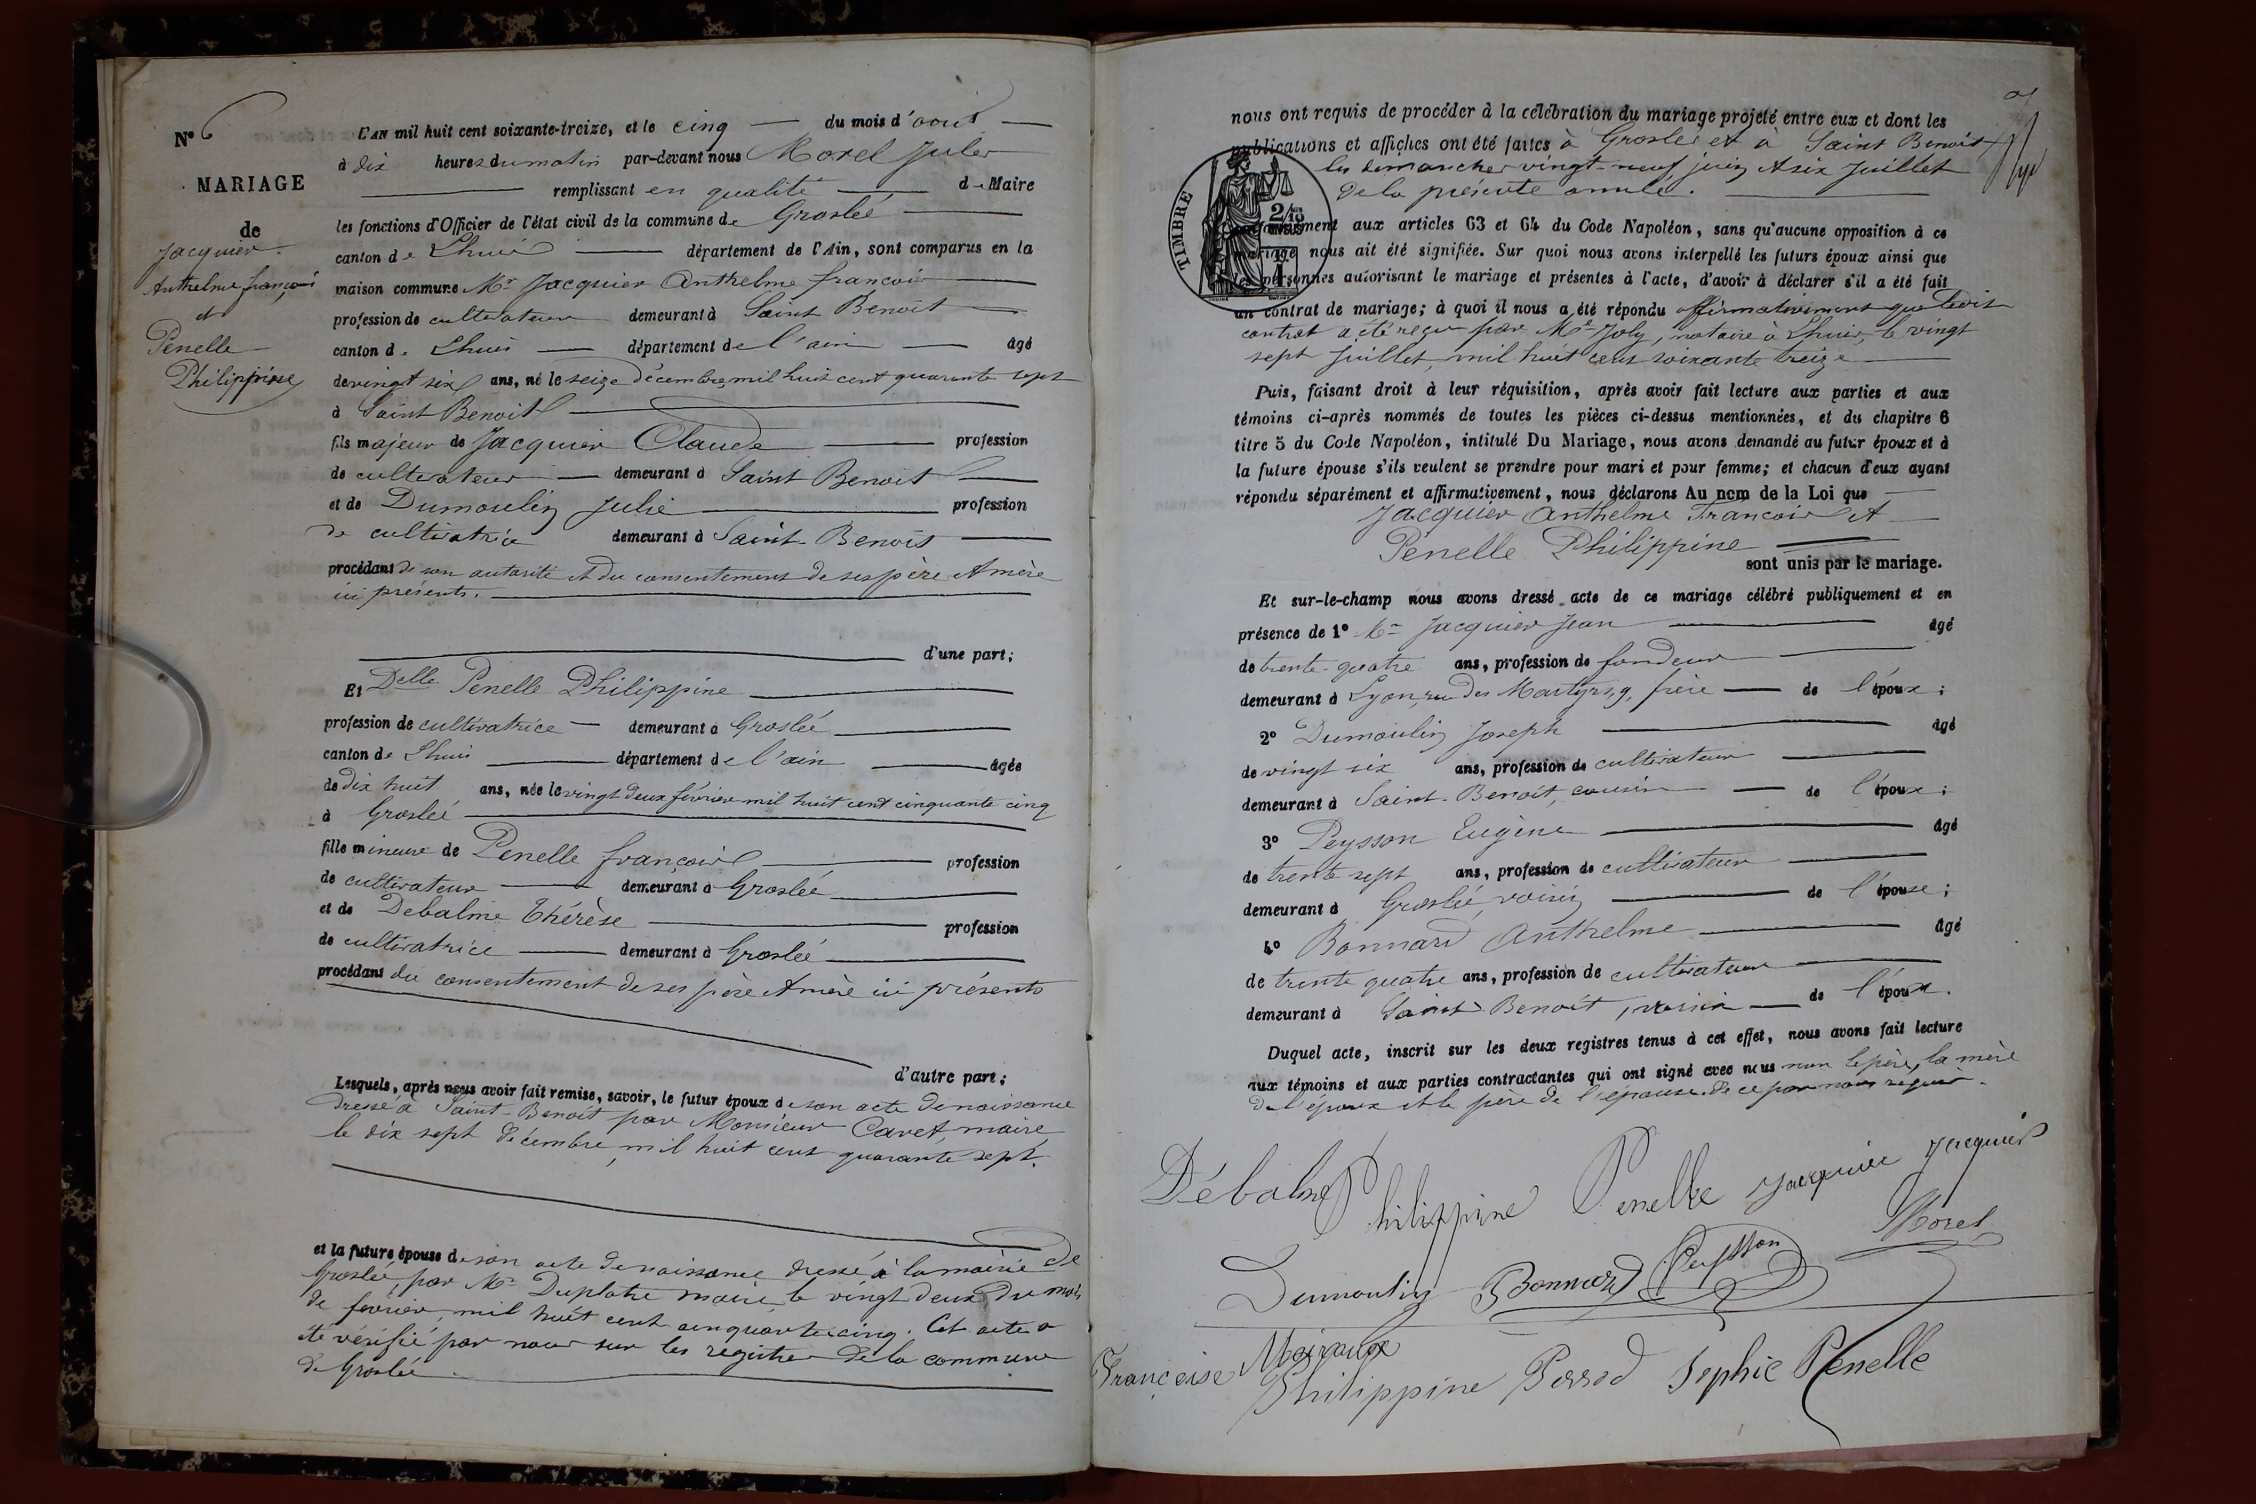 N° 6
MARIAGE
de
Jacquier
Anthelme françois
et
Penelle
Philippine
L'AN mil huit cent soixante-treize, et le cinq du mois d'août
à dix heures du matin par-devant nous Morel Jules
remplissant en qualité de Maire
les fonctions d'Officier de l'état civil de la commune de Groslée
canton de Lhuis département de l'Ain, sont comparus en la
maison commune Mr Jacquier Anthelme françois
profession de cultivateur demeurant à Saint Benoit
canton de Lhuis département de l'ain âgé
de vingt six ans, né le seize décembre mil huit cent quarante sept
à Saint Benoit
fils majeur de Jacquier Claude profession
de cultivateur demeurant à Saint Benoit
et de Dumoulin Julie profession
de cultivatrice demeurant à Saint-Benoit
procédant de son autorité et du consentement de ses père et mère
ici présents.
d'une part;
Et Delle Penelle Philippine
profession de cultivatrice demeurant à Groslée
canton de Lhuis département de l'ain âgée
de dix huit ans, née le vingt deux février mil huit cent cinquante cinq
à Groslée
fille mineure de Penelle françois profession
de cultivateur demeurant à Groslée
et de Debalme Thérèse profession
de cultivatrice demeurant à Groslée
procédant du consentement de ses père et mère ici présents
d'autre part;
Lesquels, après nous avoir fait remise, savoir, le futur époux de son acte de naissance
dressé à Saint-Benoit par Monsieur Cavet, maire
le dix sept décembre, mil huit cent quarante sept.
et la future épouse de son acte de naissance dressé à la mairie de
Groslée par Mr Duplatre maire, le vingt deux du mois
de février, mil huit cent cinquante cinq. Cet acte a
été vérifié par nous sur les registres de la commune
de Groslée
nous ont requis de procéder à la célébration du mariage projeté entre eux et dont les
publications et affiches ont été faites à Groslée et à Saint Benoit
les dimanches vingt-neuf juin et six Juillet
de la présente année.
TIMBRE
conformément aux articles 63 et 64 du Code Napoléon, sans qu'aucune opposition à ce
mariage nous ait été signifiée. Sur quoi nous avons interpellé les futurs époux ainsi que
les personnes autorisant le mariage et présentes à l'acte, d'avoir à déclarer s'il a été fait
un contrat de mariage; à quoi il nous a été répondu affirmativement que ledit
contrat a été reçu par Me Joly, notaire à Lhuis, le vingt
sept Juillet, mil huit cent soixante treize
Puis, faisant droit à leur réquisition, après avoir fait lecture aux parties et aux
témoins ci-après nommés de toutes les pièces ci-dessus mentionnées, et du chapitre 6
titre 5 du Code Napoléon, intitulé Du Mariage, nous avons demandé au futur époux et à
la future épouse s'ils veulent se prendre pour mari et pour femme; et chacun d'eux ayant
répondu séparément et affirmativement, nous déclarons Au nom de la Loi que
Jacquier Anthelme Francois et
Penelle Philippine
sont unis par le mariage.
Et sur-le-champ nous avons dressé acte de ce mariage célébré publiquement et en
présence de 1° Mr Jacquier Jean âgé
de trente-quatre ans, profession de fondeur
demeurant à Lyon, rue des Martyrs, 9, frère de l'époux;
2° Dumoulin Joseph âgé
de vingt six ans, profession de cultivateur
demeurant à Saint-Benoit, cousin de l'époux;
3° Peysson Eugène âgé
de trente sept ans, profession de cultivateur
demeurant à Groslée, voisin de l'épouse;
4° Bonnard Anthelme âgé
de trente quatre ans, profession de cultivateur
demeurant à Saint-Benoit, voisin de l'époux.
Duquel acte, inscrit sur les deux registres tenus à cet effet, nous avons fait lecture
aux témoins et aux parties contractantes qui ont signé avec nous non le père, la mère
de l'époux et le père de l'épouse. de ce par nous requis.
Débalme Philippine Penelle Jacquier Jacquier
Dumoulin Bonnard Peysson Morel
Françoise
Philippine Perrod Sophie Penelle